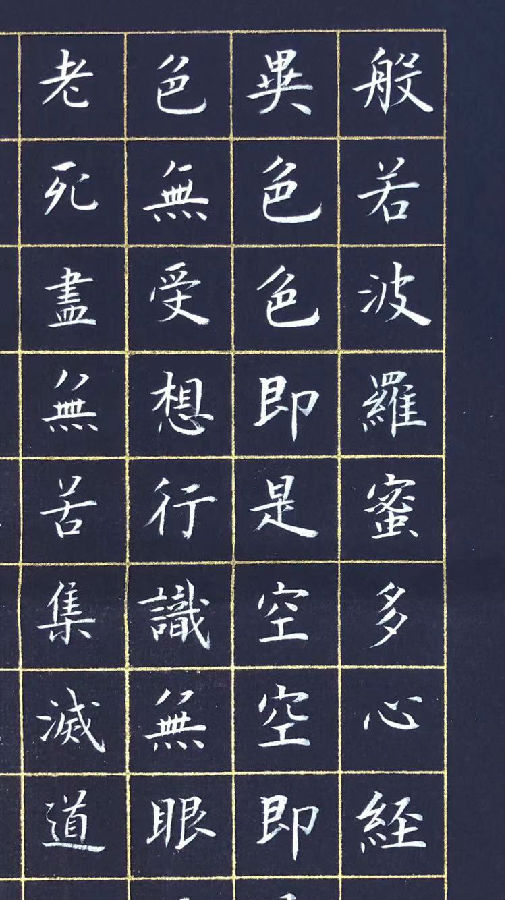 般若波羅蜜多心経
異色色即是空空即
色無受想行識無眼
老死盡無苦集滅道